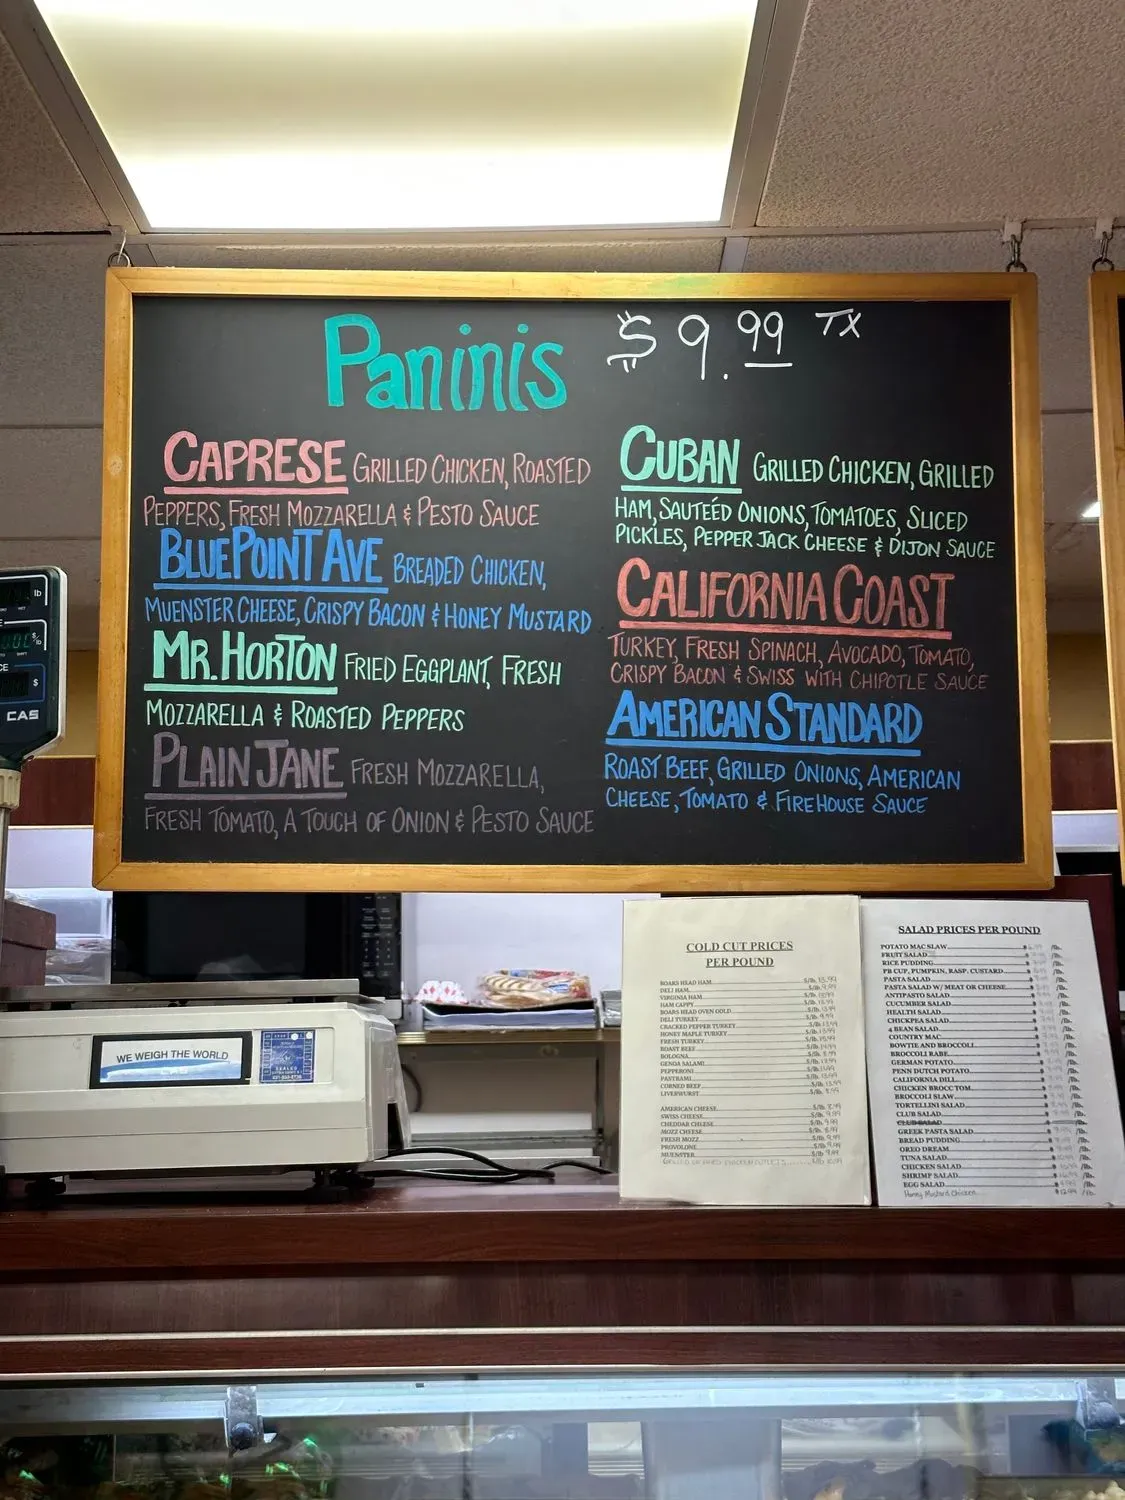 Paninis $9.99 TX
CAPRESE GRILLED CHICKEN, ROASTED
PEPPERS, FRESH MOZZARELLA & PESTO SAUCE
BLUEPOINT AVE BREADED CHICKEN,
MUENSTER CHEESE, CRISPY BACON & HONEY MUSTARD
MR. HORTON FRIED EGGPLANT, FRESH
MOZZARELLA & ROASTED PEPPERS
PLAIN JANE FRESH MOZZARELLA,
FRESH TOMATO, A TOUCH OF ONION & PESTO SAUCE
CUBAN GRILLED CHICKEN, GRILLED
HAM, SAUTEÉD ONIONS, TOMATOES, SLICED
PICKLES, PEPPER JACK CHEESE & DIJON SAUCE
CALIFORNIA COAST
TURKEY, FRESH SPINACH, AVOCADO, TOMATO,
CRISPY BACON & SWISS WITH CHIPOTLE SAUCE
AMERICAN STANDARD
ROAST BEEF, GRILLED ONIONS, AMERICAN
CHEESE, TOMATO & FIREHOUSE SAUCE
lb
$
CAS
WE WEIGH THE WORLD
CAS
COLD CUT PRICES
PER POUND
BOARS HEAD HAM
DELI HAM
VIRGINIA HAM
HAM CAPPY
BOARS HEAD OVEN GOLD
DELI TURKEY
CRACKED PEPPER TURKEY
HONEY MAPLE TURKEY
FRESH TURKEY
ROAST BEEF
BOLOGNA
GENOA SALAMI
PEPPERONI
PASTRAMI
CORNED BEEF
LIVERWURST
AMERICAN CHEESE
SWISS CHEESE
CHEDDAR CHEESE
MOZZ CHEESE
FRESH MOZZ
PROVOLONE
MUENSTER
SALAD PRICES PER POUND
POTATO MAC SLAW
FRUIT SALAD
RICE PUDDING
PB CUP, PUMPKIN, RASP. CUSTARD
PASTA SALAD
PASTA SALAD W/ MEAT OR CHEESE
ANTIPASTO SALAD
CUCUMBER SALAD
HEALTH SALAD
CHICKPEA SALAD
4 BEAN SALAD
COUNTRY MAC
BOWTIE AND BROCCOLI
BROCCOLI RABE
GERMAN POTATO
PENN DUTCH POTATO
CALIFORNIA DILL
CHICKEN BROCC TOM
BROCCOLI SLAW
TORTELLINI SALAD
CLUB SALAD
CLUB SALAD
GREEK PASTA SALAD
BREAD PUDDING
OREO DREAM
TUNA SALAD
CHICKEN SALAD
SHRIMP SALAD
EGG SALAD
Honey Mustard Chicken